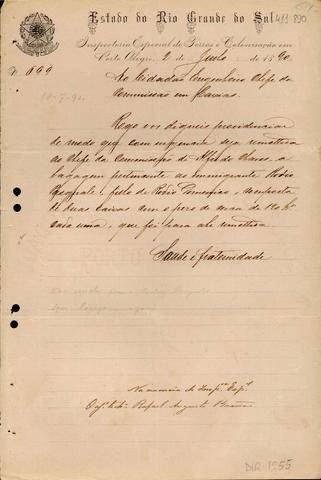 411 890
Estado do Rio Grande do Sul
Inspectoria Especial de Terras e Colonisação em
Porto Alegre, 2 de Julho de 1890.
N.
Ao Cidadão Engenheiro Chefe da
Commissão em Caxias.
Rogo vos digneis providenciar
de modo que com urgencia seja remettida
ao Chefe da Commissão de Alfredo Chaves, a
bagagem pertencente ao immigrante
composta
de duas caixas com o peso de mais de 120 k
cada uma, que foi para ahi remettida.
Saude e fraternidade
Na ausencia do Insp.or Esp.l
Rafael Augusto
DIR 1255